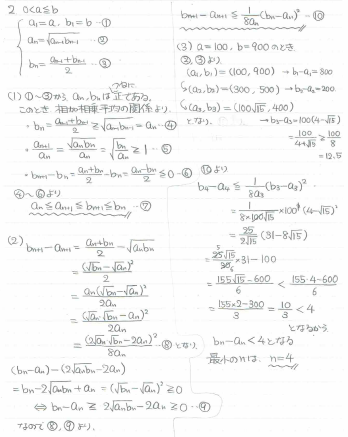 2 0<a≦b
a₁=a, b₁=b …①
aₙ=√(aₙ₋₁bₙ₋₁) …②
bₙ=(aₙ₋₁+bₙ₋₁)/2 …③
(1) ①~③から aₙ, bₙはつねに正である。
このとき、相加相乗平均の関係より、
・bₙ=(aₙ₋₁+bₙ₋₁)/2≧√(aₙ₋₁bₙ₋₁)=aₙ…④
・aₙ₊₁/aₙ=√(aₙbₙ)/aₙ=√(bₙ/aₙ)≧1…⑤
・bₙ₊₁-bₙ=(aₙ+bₙ)/2-bₙ=(aₙ-bₙ)/2≦0…⑥
④~⑥より
aₙ≦aₙ₊₁≦bₙ₊₁≦bₙ …⑦
(2) bₙ₊₁-aₙ₊₁=(aₙ+bₙ)/2-√(aₙbₙ)
=(√bₙ-√aₙ)²/2
=aₙ(√bₙ-√aₙ)²/2aₙ
=(√aₙ√bₙ-aₙ)²/2aₙ
=(2√aₙ√bₙ-2aₙ)²/8aₙ …⑧ となり、
(bₙ-aₙ)-(2√aₙbₙ-2aₙ)
=bₙ-2√aₙbₙ+aₙ=(√bₙ-√aₙ)²≧0
⇔ bₙ-aₙ≧2√aₙbₙ-2aₙ≧0…⑨
なので⑧,⑨より、
bₙ₊₁-aₙ₊₁≦1/8aₙ(bₙ-aₙ)²…⑩
(3) a=100, b=900のとき、
②,③より、
(a₁,b₁)=(100,900) → b₁-a₁=800
(a₂,b₂)=(300,500) → b₂-a₂=200
(a₃,b₃)=(100√15,400)
となり、 → b₃-a₃=100(4-√15)
=100/(4+√15)≧100/8
=12.5
⑩より
b₄-a₄≦1/8a₃(b₃-a₃)²
=1/(8×100√15)×100²(4-√15)²
=25/2√15(31-8√15)
=5√15/6×31-100
=(155√15-600)/6<(155·4-600)/6
=(155×2-300)/3=10/3<4
となるから
bₙ-aₙ<4となる
最小のnは、n=4